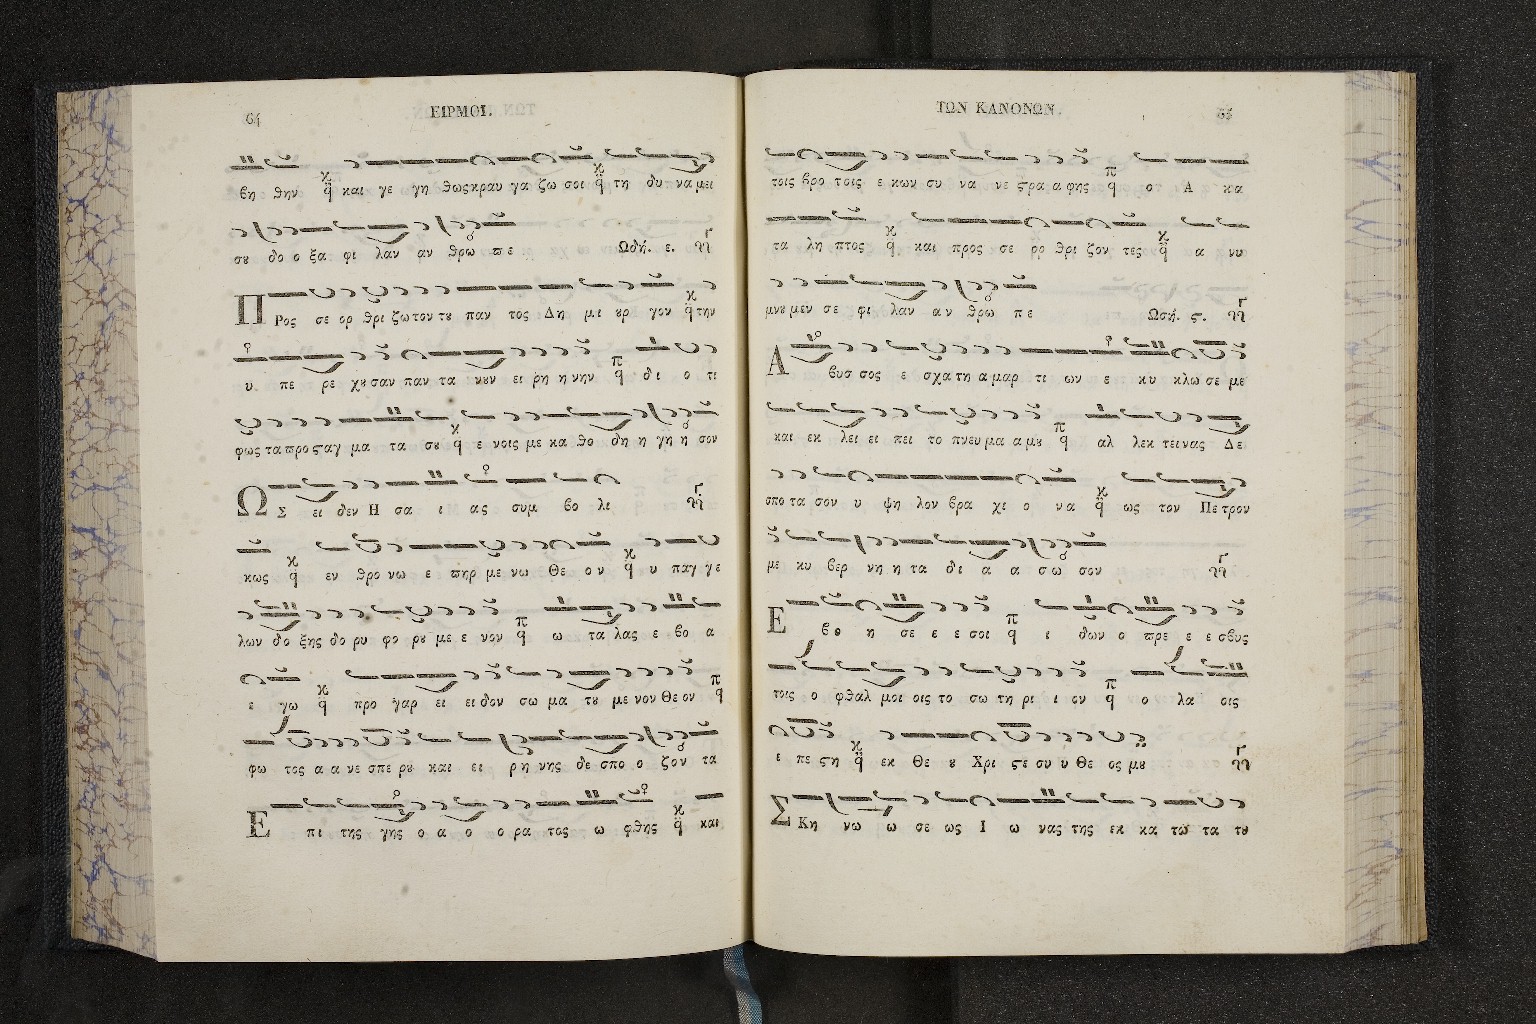 64 ΕΙΡΜΟΙ.
βη θην και γε γη θως κραυ γα ζω σοι τη δυ να μει
σȣ δο ο ξα φι λαν αν θρω πε Ωδή. ε.
ΠΡος σε ορ θρι ζω τον τȣ παν τος Δη μι ȣρ γον την
υ πε ρε χȣ σαν παν τα νȣν ει ρη η νην δι ο τι
φως τα προ ϛαγ μα τα σȣ ε νοις με κα θο δη η γη η σον
ΩΣ ει δεν Η σα ι ας συμ βο λι
κως εν θρο νω ε πηρ με νω Θε ον υ παγ γε
λων δο ξης δο ρυ φο ρȣ με ε νον ω τα λας ε βο α
ε γω προ γαρ ει ει δον σω μα τȣ με νον Θε ον
φω τος α α νε σπε ρȣ και ει ρη νης δε σπο ο ζον τα
Επι της γης ο α ο ο ρα τος ω φθης και
ΤΩΝ ΚΑΝΟΝΩΝ.
τοις βρο τοις ε κων συ να νε ϛρα α φης ο Α κα
τα λη πτος και προς σε ορ θρι ζον τες α νυ
μνȣ μεν σε φι λαν αν θρω πε Ωδή. ϛ.
Αβυσ σος ε σχα τη α μαρ τι ων ε κυ κλω σε με
και εκ λει ει πει το πνευ μα α μȣ αλ λεκ τει νας Δε
σπο τα σον υ ψη λον βρα χι ο να ως τον Πε τρον
με κυ βερ νη η τα δι α α σω σον
Εβο η σε ε ε σοι ι δων ο πρε ε ε σβυς
τοις ο φθαλ μοι οις το σω τη ρι ι ον ο λα οις
ε πε ϛη εκ Θε ȣ Χρι ϛε συ υ Θε ος μȣ
ΣΚη νω ω σε ως Ι ω νας της εκ κα τω τα τȣ